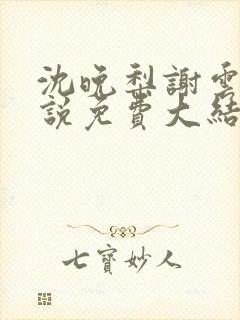 沈晚梨謝雲
說免費大結
七寶妙人